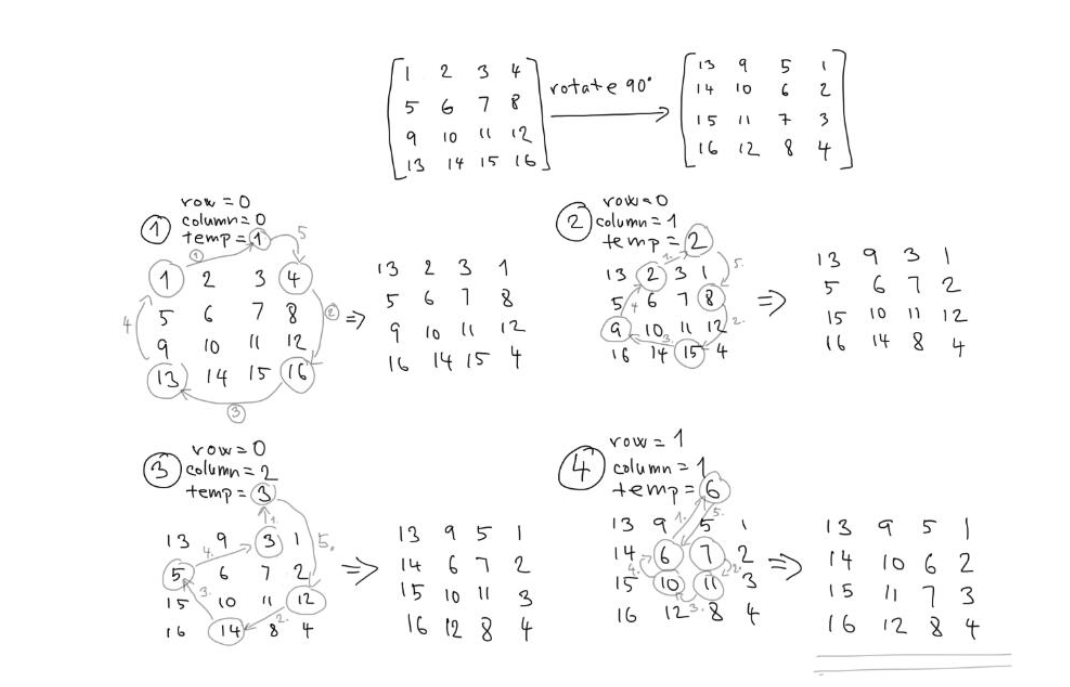 1 2 3 4
5 6 7 8
9 10 11 12
13 14 15 16
rotate 90°
13 9 5 1
14 10 6 2
15 11 7 3
16 12 8 4
1
row = 0
column = 0
temp = 1
1
5
1 2 3 4
5 6 7 8
9 10 11 12
13 14 15 16
2
3
4
⇒
13 2 3 1
5 6 7 8
9 10 11 12
16 14 15 4
2
row = 0
column = 1
temp = 2
1.
5.
13 2 3 1
5 6 7 8
9 10 11 12
16 14 15 4
2.
3.
4
⇒
13 9 3 1
5 6 7 2
15 10 11 12
16 14 8 4
3
row = 0
column = 2
temp = 3
1.
5.
13 9 3 1
5 6 7 2
15 10 11 12
16 14 8 4
2.
3.
4.
⇒
13 9 5 1
14 6 7 2
15 10 11 3
16 12 8 4
4
row = 1
column = 1
temp = 6
1.
5.
13 9 5 1
14 6 7 2
15 10 11 3
16 12 8 4
2.
3.
4.
⇒
13 9 5 1
14 10 6 2
15 11 7 3
16 12 8 4